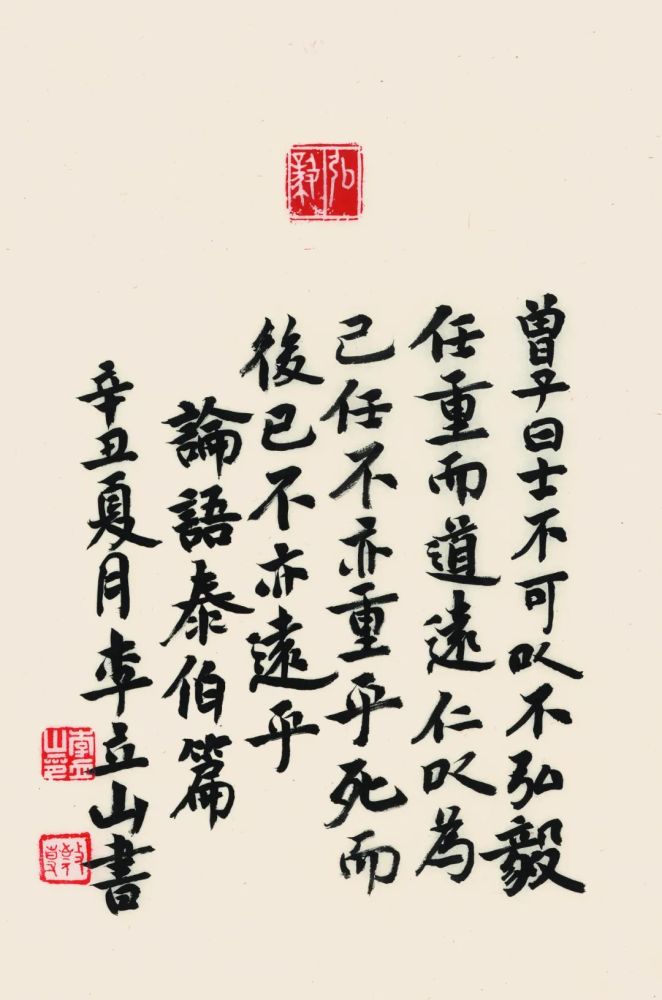 弘毅
曾子曰士不可以不弘毅
任重而道遠仁以為
己任不亦重乎死而
後已不亦遠乎
論語泰伯篇
辛丑夏月李立山書
李立山印